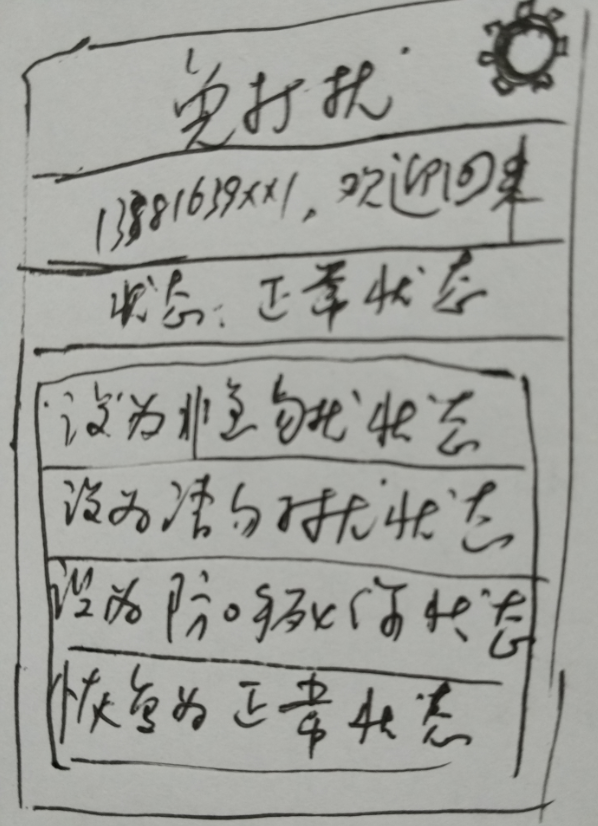 免打扰
13881639xx1，欢迎回来
状态：正常状态
设为非急勿扰状态
设为请勿打扰状态
设为防呼死你状态
恢复为正常状态